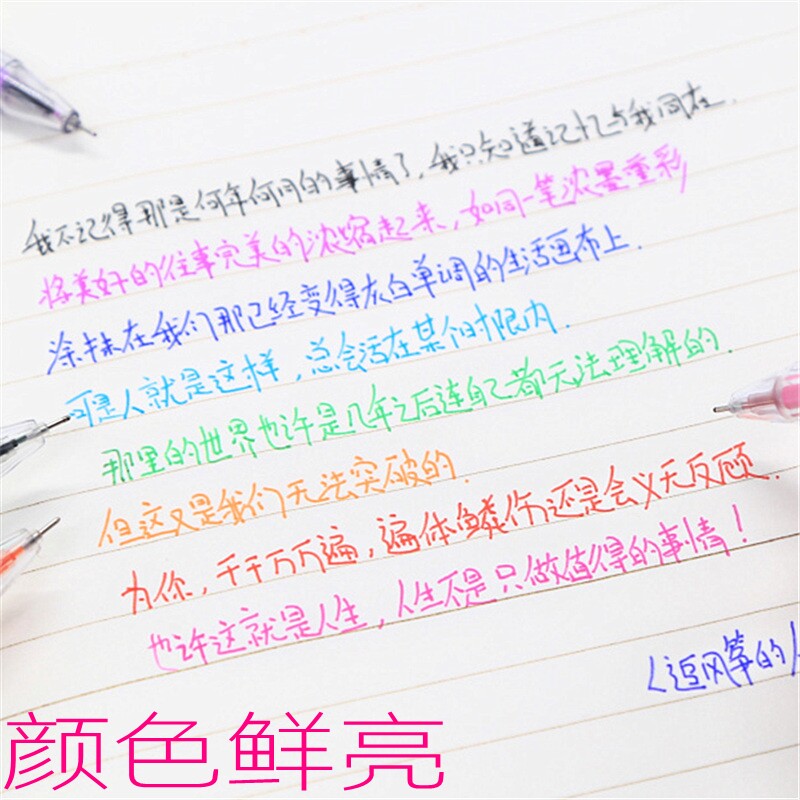 我不记得那是何年何月的事情了，我只知道记忆与我同在.
将美好的往事完美的浓缩起来，如同一笔浓墨重彩
涂抹在我们那已经变得灰白单调的生活画布上.
可是人就是这样，总会活在某个时限内.
那里的世界也许是几年之后连自己都无法理解的.
但这又是我们无法突破的.
为你，千千万万遍，遍体鳞伤还是会义无反顾.
也许这就是人生，人生不是只做值得的事情！
《追风筝的人
颜色鲜亮